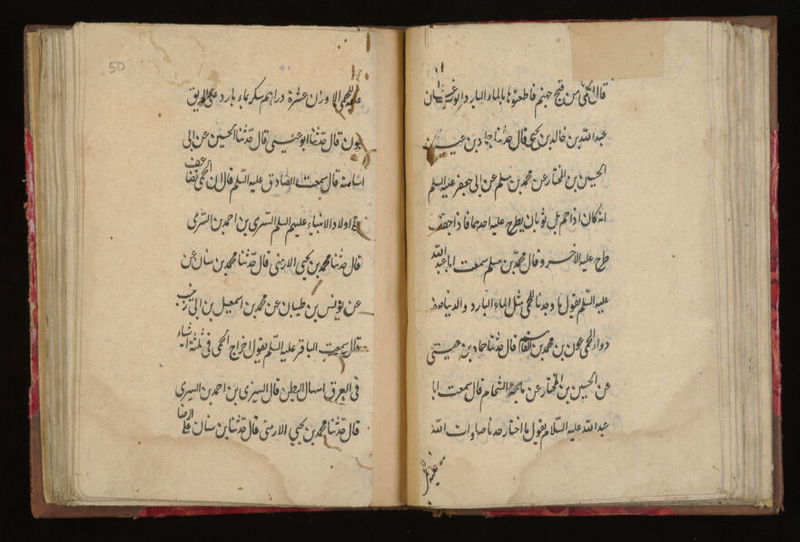 قال الحمى من فيح جهنم فاطفئوها بالماء البارد ابو غسان
عبد الله بن خالد بن يحيى قال حدثنا حماد بن عيسى عن
الحسين بن المختار عن محمد بن مسلم عن ابى جعفر عليه السلم
انه كان اذا حم بل ثوبان يطرح عليه احدهما فاذا جف
طرح عليه الاخر وقال محمد بن مسلم سمعت ابا عبد الله
عليه السلم يقول ما وجدنا للحمى مثل الماء البارد والدعا
دواء الحمى عون بن محمد بن القاسم قال حدثنا حماد بن عيسى
عن الحسين بن المختار عن الشحام قال سمعت ابا
عبد الله عليه السلام يقول ما اختار جدنا صلوات الله
عليه
50
للحمى الا وزن عشرة دراهم سكر بماء بارد على الريق
عون قال حدثنا ابو عيسى قال حدثنا الحسين عن ابى
اسامة قال سمعت الصادق عليه السلم قال ان الحمى تضاعف
على اولاد الانبياء عليهم السلم السرى بن احمد بن السرى
قال حدثنا محمد بن يحيى الارمنى قال حدثنا محمد بن سنان عن
عن يونس بن ظبيان عن محمد بن اسمعيل بن ابى زينب
قال سمعت الباقر عليه السلم يقول اخراج الحمى فى ثلثة اشياء
فى العرق اسهال البطن قال السيرى بن احمد بن السيرى
قال حدثنا محمد بن يحيى الارمنى قال حدثنا بن سنان الرضا